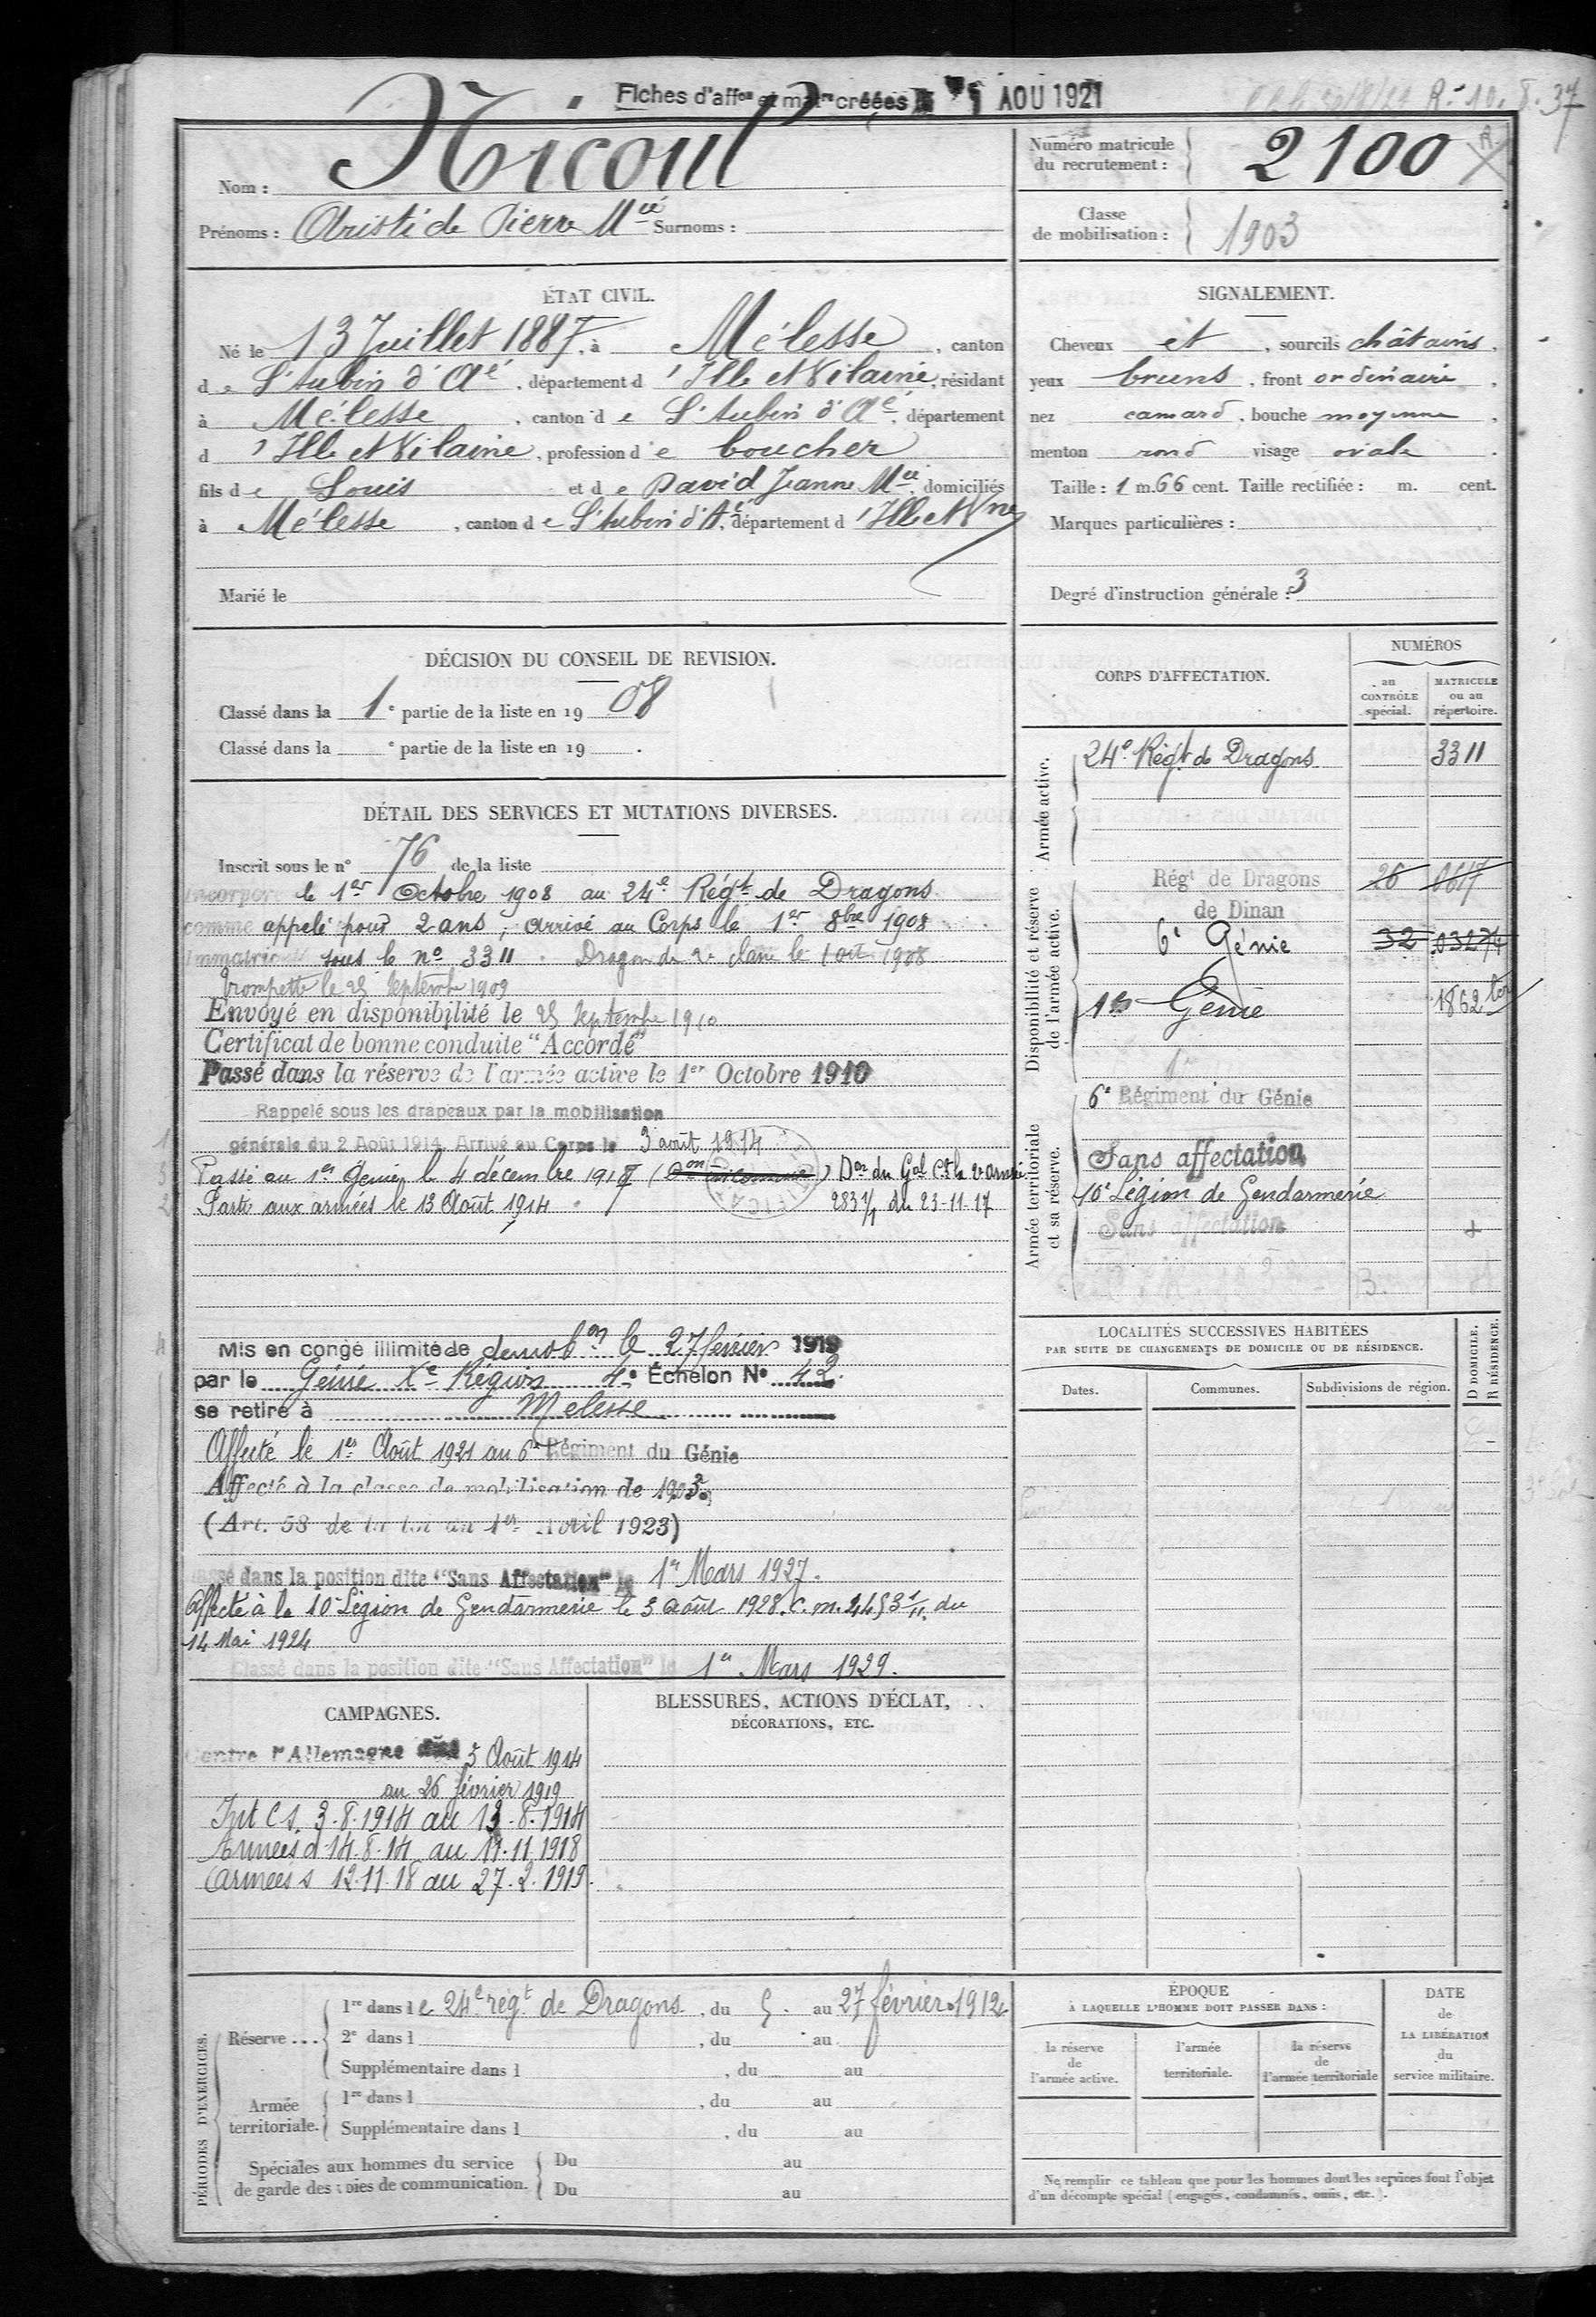 Fiches d'affon et matre créées le 5 AOU 1921
R. 10. 8. 37
Nom : Nicoul
Prénoms : Aristide Pierre Mie Surnoms :
Numéro matricule du recrutement : 2100
Classe de mobilisation : 1903
ÉTAT CIVIL.
Né le 13 Juillet 1887, à Mélesse, canton
de St Aubin d'Aé, département d'Ille et Vilaine, résidant
à Mélesse, canton de St Aubin d'Aé, département
d'Ille et Vilaine, profession de boucher
fils de Louis et de David Jeanne Mie, domiciliés
à Mélesse, canton de St Aubin d'Aé, département d'Ille et Vne
Marié le
SIGNALEMENT.
Cheveux et, sourcils châtains,
yeux bruns, front ordinaire,
nez camard, bouche moyenne,
menton rond visage ovale.
Taille : 1 m. 66 cent. Taille rectifiée : m. cent.
Marques particulières :
Degré d'instruction générale : 3
DÉCISION DU CONSEIL DE REVISION.
Classé dans la 1e partie de la liste en 1908
Classé dans la e partie de la liste en 19 .
DÉTAIL DES SERVICES ET MUTATIONS DIVERSES.
Inscrit sous le n° 76 de la liste
Incorporé le 1er Octobre 1908 au 24e Régt de Dragons
comme appelé pour 2 ans, arrivé au Corps le 1er 8bre 1908
Immatriculé sous le no 3311. Dragon de 2e classe le 1 oct 1908
Trompette le 25 Septembre 1909
Envoyé en disponibilité le 25 Septembre 1910
Certificat de bonne conduite "Accordé"
Passé dans la réserve de l'armée active le 1er Octobre 1910
Rappelé sous les drapeaux par la mobilisation
1 générale du 2 Août 1914. Arrivé au Corps le 3 août 1914
3 Passé au 1er Génie le 4 décembre 1917 ( Don du Gal Ct la V armée
2 Parti aux armées le 13 Août 1914. 283 1/1 du 23-11-17
4 Mis en congé illimité de démobon le 27 février 1919
par le Génie Xe Région 4e Échelon No 42.
se retire à Melesse
Affecté le 1er Août 1921 au 6e Régiment du Génie
Affecté à la classe de mobilisation de 1903
(Art. 58 de la loi du 1er Avril 1923)
Passé dans la position dite "Sans Affectation" le 1er Mars 1927.
Affecté à la 10e Légion de Gendarmerie le 3 Août 1928. C.m. 2453 1/11 du
14 Mai 1924
Classé dans la position dite "Sans Affectation" le 1er Mars 1929.
CORPS D'AFFECTATION.
NUMÉROS
au CONTRÔLE spécial.
MATRICULE ou au répertoire.
Armée active.
24e Régt de Dragons 3311
Disponibilité et réserve de l'armée active.
Régt de Dragons 26 0617
de Dinan
6e Génie 32 03274
1er Génie 1862 ter
Armée territoriale et sa réserve.
6e Régiment du Génie
Sans affectation
10e Légion de Gendarmerie
Sans affectation +
LOCALITÉS SUCCESSIVES HABITÉES
PAR SUITE DE CHANGEMENTS DE DOMICILE OU DE RÉSIDENCE.
Dates. Communes. Subdivisions de région. D DOMICILE. R RÉSIDENCE.
CAMPAGNES.
Contre l'Allemagne 3 Août 1914
au 26 février 1919
Int CS. 3.8.1914 au 13.8.1914
Armées d 14.8.14 au 11.11.1918
Armées s 12.11.18 au 27.2.1919.
BLESSURES, ACTIONS D'ÉCLAT,
DÉCORATIONS, ETC.
PÉRIODES D'EXERCICES.
Réserve...
1re dans le 24e régt de Dragons, du 5. au 27 février 1912
2e dans l , du au
Supplémentaire dans l , du au
Armée territoriale.
1re dans l , du au
Supplémentaire dans l , du au
Spéciales aux hommes du service
de garde des voies de communication.
Du au
Du au
ÉPOQUE
À LAQUELLE L'HOMME DOIT PASSER DANS :
la réserve de l'armée active.
l'armée territoriale.
la réserve de l'armée territoriale
DATE de LA LIBÉRATION du service militaire.
Ne remplir ce tableau que pour les hommes dont les services font l'objet
d'un décompte spécial (engagés, condamnés, omis, etc.).